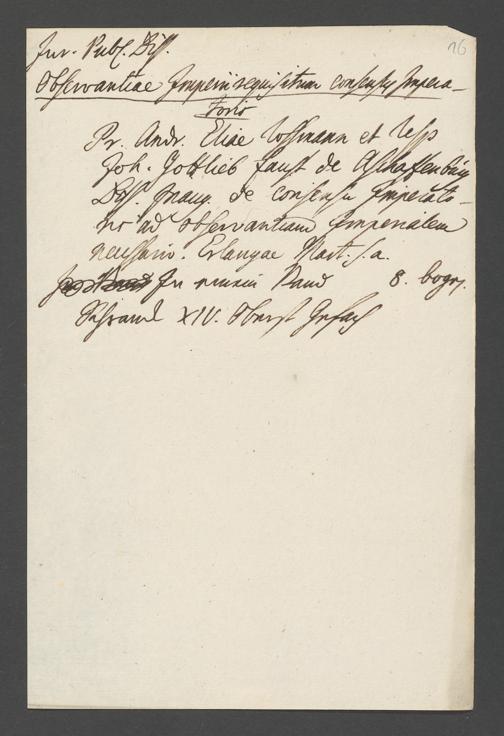 16
Jur. Publ. Diss.
Observantiae Imperii requisitum consensus Impera-
toris
Pr. Andr. Eliae Rossmann et Resp
Joh. Gottlieb Faust de Aschaffenburg
Diss. inaug. de consensu Imperato-
ris ad observantiam Imperialem
necessario. Erlangae Mart. s. a.
In einem Band 8. bog.
Schrank XIV. Oberst Gefach